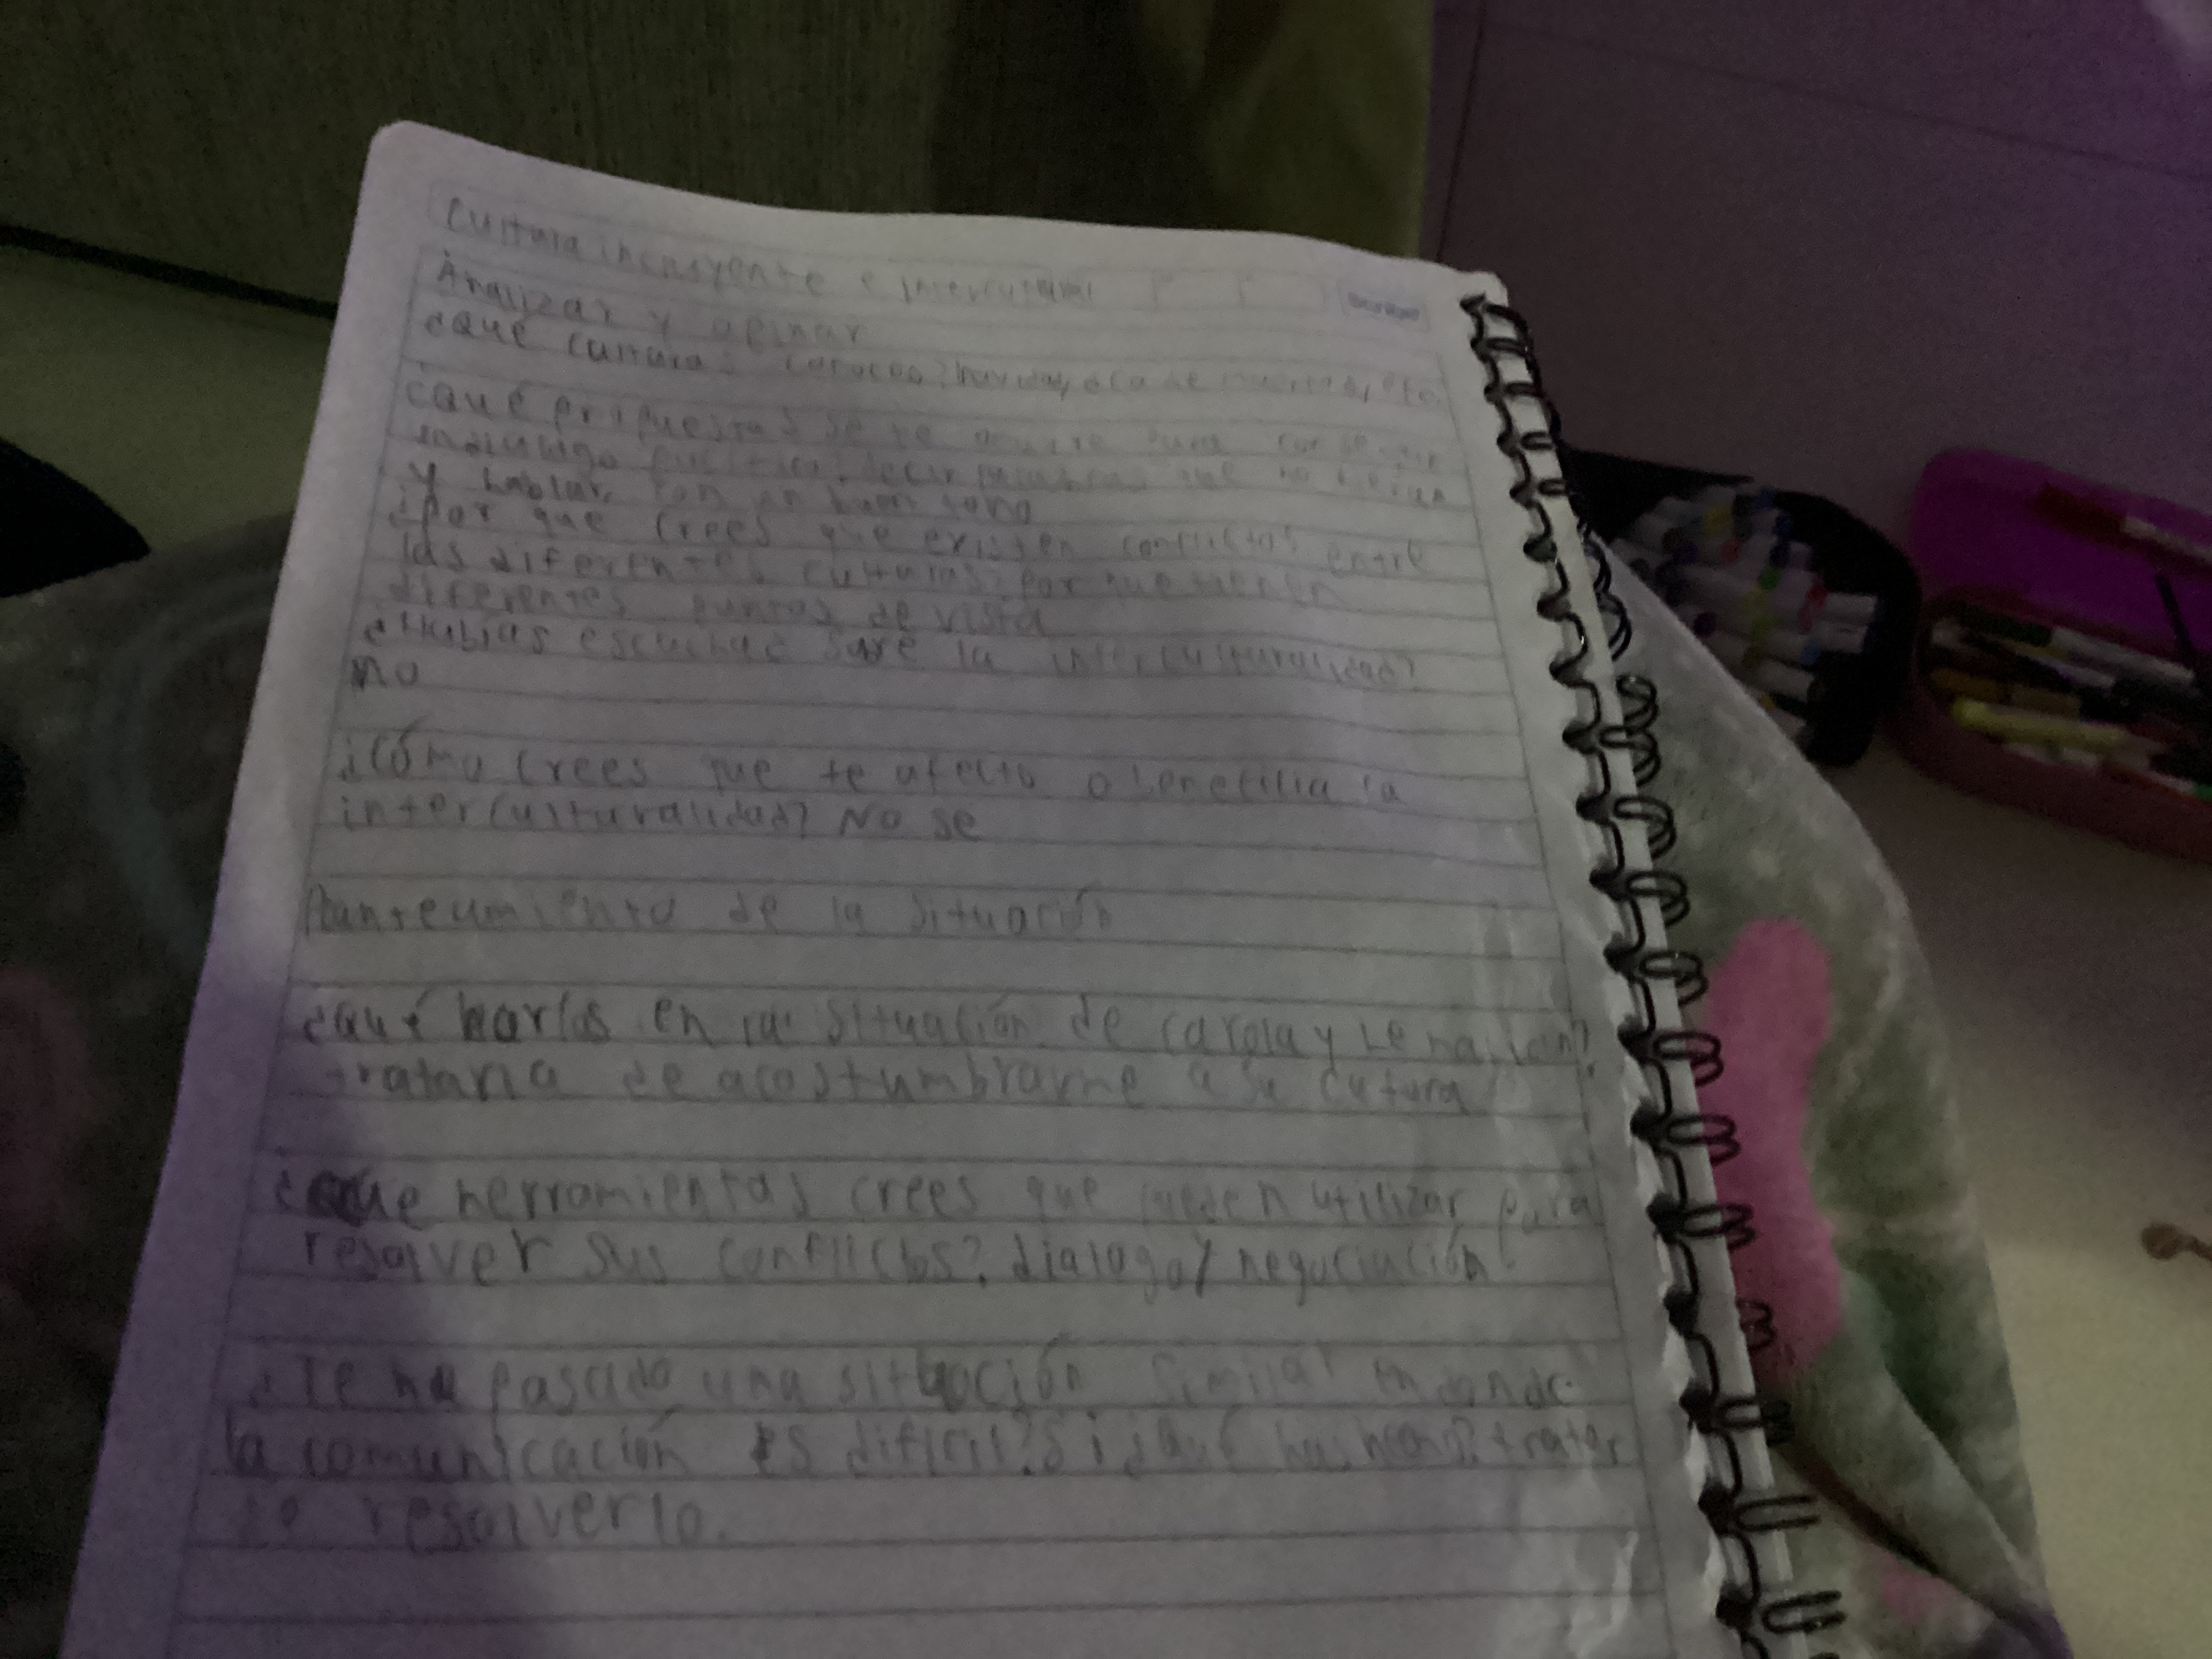 Cultura incluyente e intercultural
Analizar y opinar
¿Qué culturas conoces? navidad, día de muertos, etc.
¿Qué propuestas se te ocurre para conseguir
un dialogo pacifico? decir palabras que no
y hablar con un buen tono
¿Por que crees que existen conflictos entre
las diferentes culturas? por que tienen
diferentes puntos de vista
¿Habías escuchado sobre la interculturalidad?
no
¿Cómo crees que te afecta o beneficia la
interculturalidad? No se
Planteamiento de la situación
¿Qué harías en la situación de Carola y
trataria de acostumbrarme a su cutura
¿Que herramientas crees que pueden utilizar para
resolver sus conflictos? dialogo y negociación
¿Te ha pasado una situación similar en donde
la comunicación es dificil? Si ¿Qué has hecho? tratar
de resolverlo.